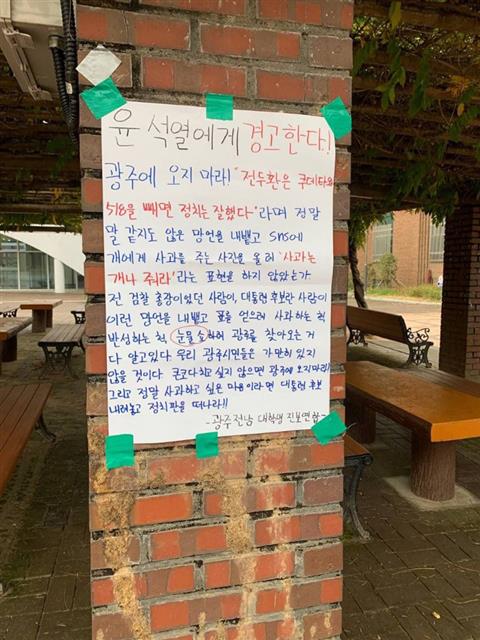 윤석열에게 경고한다!
광주에 오지 마라! "전두환은 쿠데타와
518을 빼면 정치는 잘했다"라며 정말
말 같지도 않은 망언을 내뱉고 SNS에
개에게 사과를 주는 사진을 올려 '사과는
개나 줘라'라는 표현을 하지 않았는가
전 검찰총장이었던 사람이, 대통령 후보란 사람이
이런 망언을 내뱉고 표를 얻으려 사과하는 척
반성하는 척, 눈물쇼하러 광주를 찾아오는 거
다 알고있다 우리 광주시민들은 가만히 있지
않을 것이다 큰코다치고 싶지 않으면 광주에 오지마라!
그리고 정말 사과하고 싶은 마음이라면 대통령 후보
내려놓고 정치판을 떠나라!!
-광주전남 대학생 진보연합-